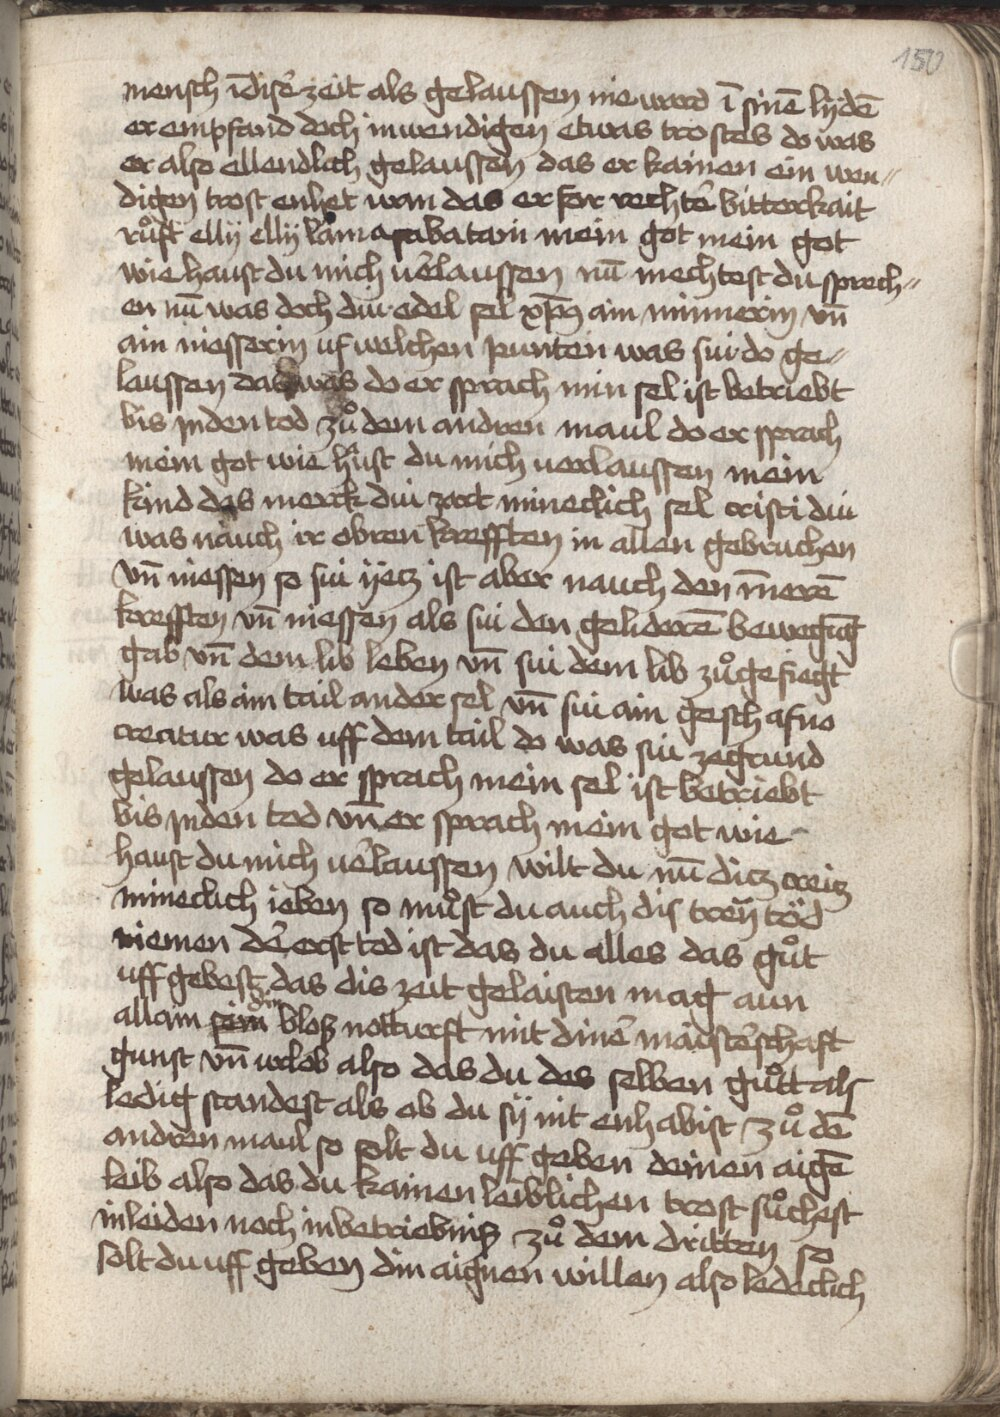 150
mensch ī diser̄ zeit als gelaussen nie ward ī sinē lydē
er empfand doch inwendigen etwas trostes do was
er also ellendlich gelaussen das er kainen ein wen〃
digen trost enhet wan das er for rechter̄ bitterkait
ruͦft elly elly lama sabatani mein got mein got
wie haust du mich ver̄laussen nū mechtest du sprech〃
en nū was doch dui edel sel xp̄s ain minnerin vn̄
ain niesserin uf welchen punten was sui do ge〃
laussen das was do er sprach min sel ist betriebt
bis in den tod zuͦ dem andren maul do er sprach
mein got wie hāst du mich verlaussen mein
kind das merck dui zart mineclich sel cristi dui
was nauch ir obren krefften in allen gebruchen
vn̄ niessen so sui yetz ist aber nauch den nider̄ē
krefften vn̄ niessen als sui den geliderē bewegūg
gab vn̄ dem lib leben vn̄ sui dem lib zuͦ gefiegt
was als ain tail ander sel vn̄ sui ain geschafne
creatur was uff dem tail do was sui zegrund
gelaussen do er sprach mein sel ist betriebt
bis in den tod vn̄ er sprach mein got wie
haust du mich ver̄laussen wilt du nū ditz creitz
mineclich ieben so muͦst du auch dis trey töd
niemen der̄ erst tod ist das du alles das guͦt
uff gebest das dis zeit gelaisten mag aun
allain din bloß notturft mit diner̄ maister̄schaft
gunst vn̄ urlob also das du des selben guͦtt als
ledig standest als ob du sy nit enhabist zuͦ dē
andren maul so solt du uff geben deinen aigē
leib also das du kainen leiblichen trost suͦchest
in leiden noch in betriebniß zuͦ dem dritten so
solt du uff geben din aignen willen also ledeclich